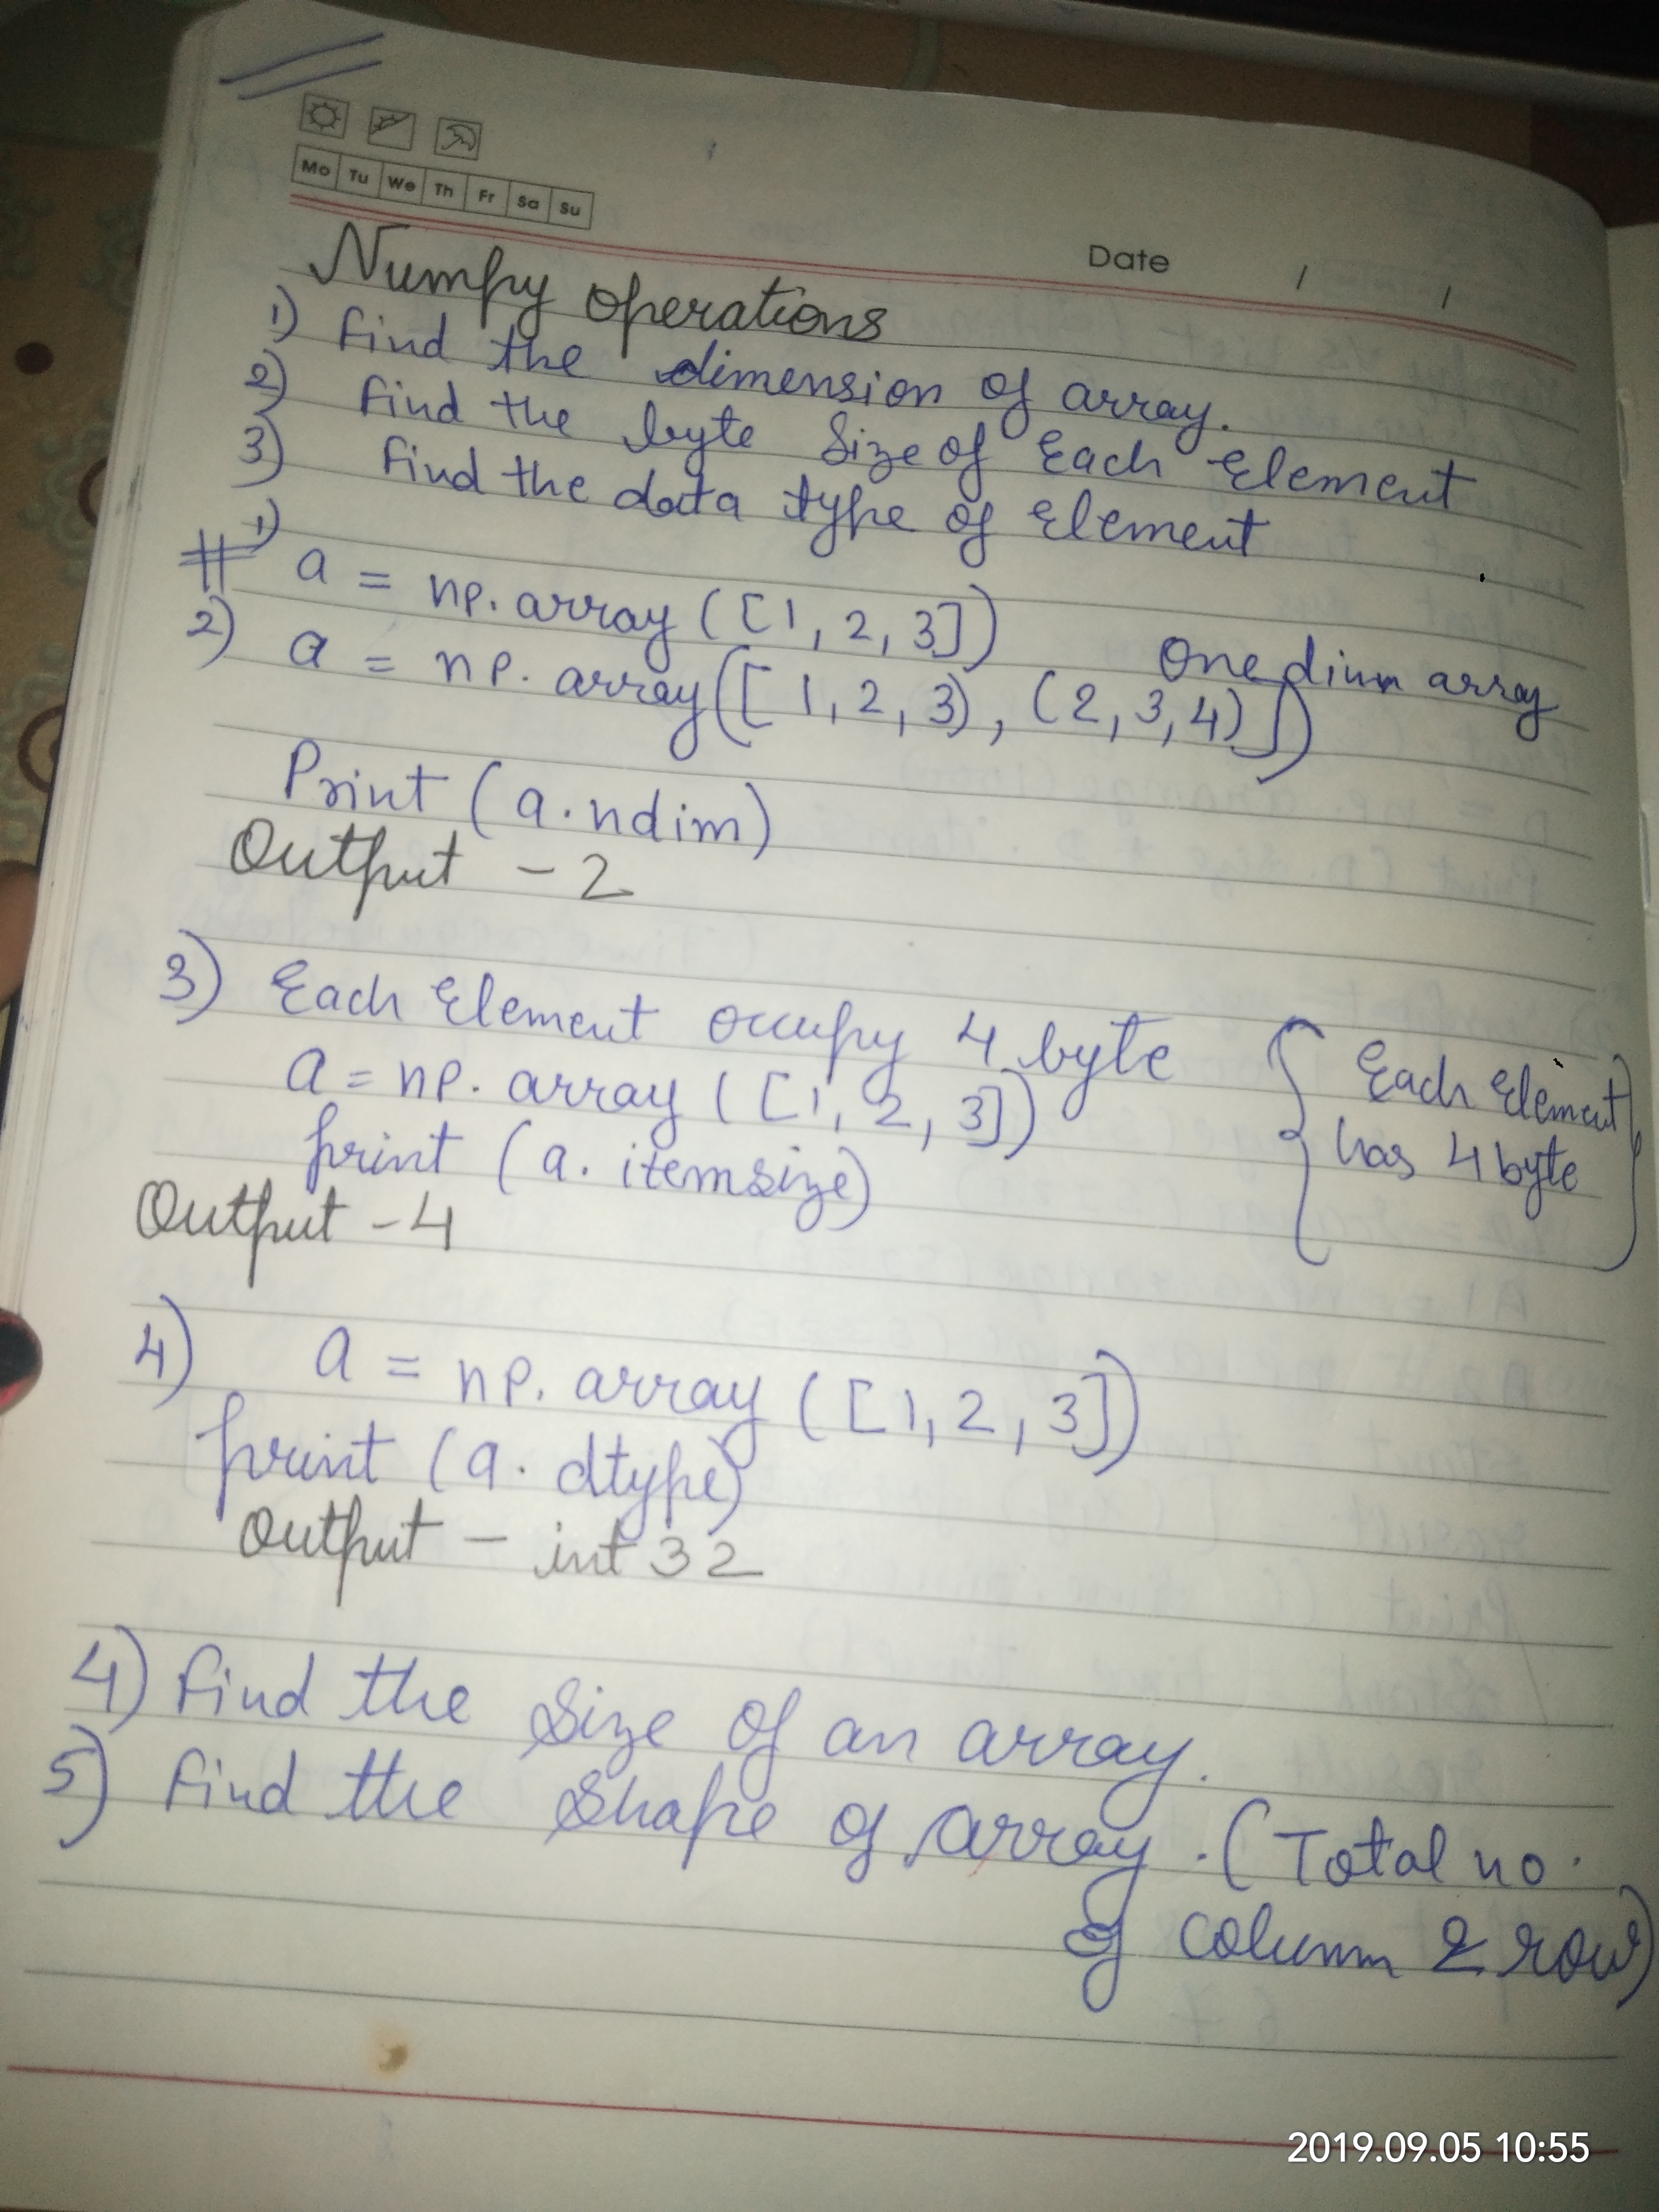 Mo Tu We Th Fr Sa Su
Date / /
Numpy operations
1) find the dimension of array.
2) find the byte size of Each Element
3) find the data type of Element
# 1) a = np.array ([1, 2, 3])
One dium array
2) a = np.array([ 1, 2, 3), (2, 3, 4)])
Print (a.ndim)
Output - 2
3) Each Element occupy 4 byte
a = np.array ([1, 2, 3])
print (a.itemsize)
{ Each Element
has 4 byte }
Output - 4
4) a = np.array ([1, 2, 3])
print (a.dtype)
Output - int 32
4) find the size of an array.
5) find the shape of array. (Total no.
of column & row)
2019.09.05 10:55